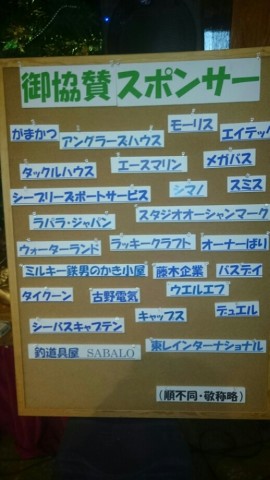 御協賛スポンサー
がまかつ アングラーズハウス モーリス エイテック
タックルハウス エースマリン メガバス
シーブリーズボートサービス シマノ スミス
ラパラ・ジャパン スタジオオーシャンマーク
ウォーターランド ラッキークラフト オーナーばり
ミルキー鉄男のかき小屋 藤木企業 バスデイ
タイクーン 古野電気 ウエルエフ
シーバスキャプテン キャップス デュエル
釣道具屋 SABALO 東レインターナショナル
(順不同・敬称略)